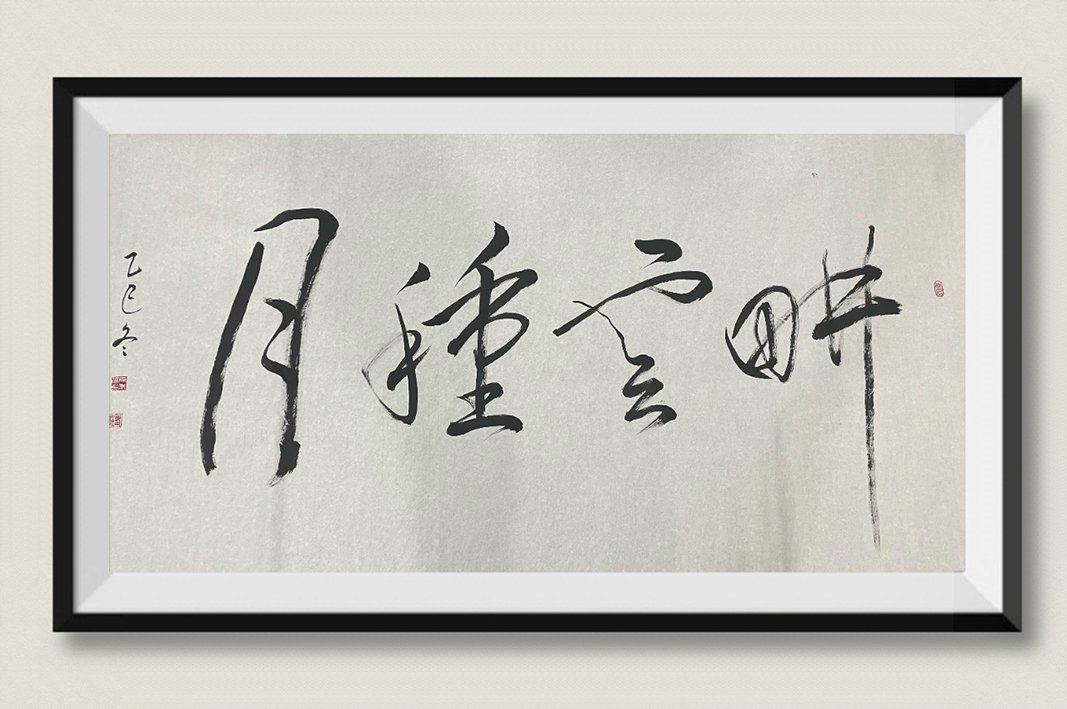 畊雲種月
乙巳冬